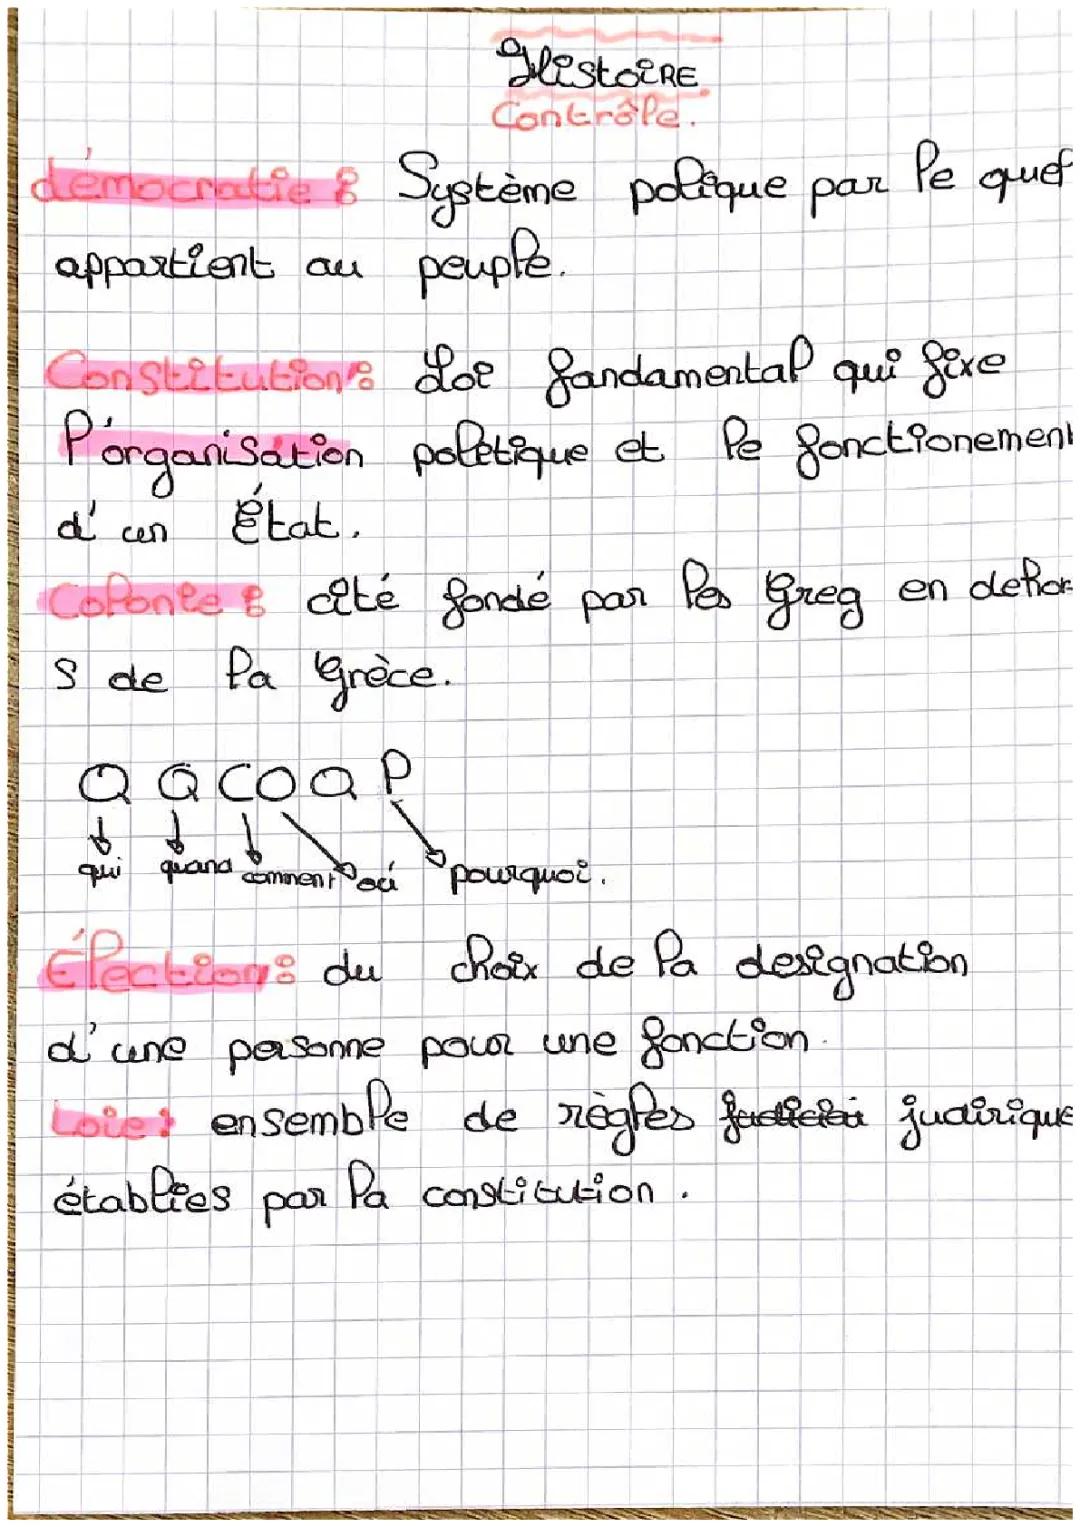 Histoire
Contrôle.
démocratie : Système polique par le quel
appartient au peuple.
Constitution : Loi fondamental qui fixe
l'organisation politique et le fonctionement
d'un État.
Colonie : cité fondé par les Greg en dehor
s de la Grèce.
Q Q C O Q P
qui quand comment où pourquoi.
Élection : du choix de la designation
d'une personne pour une fonction.
Loie : ensemble de règles judirique
établies par la constitution.